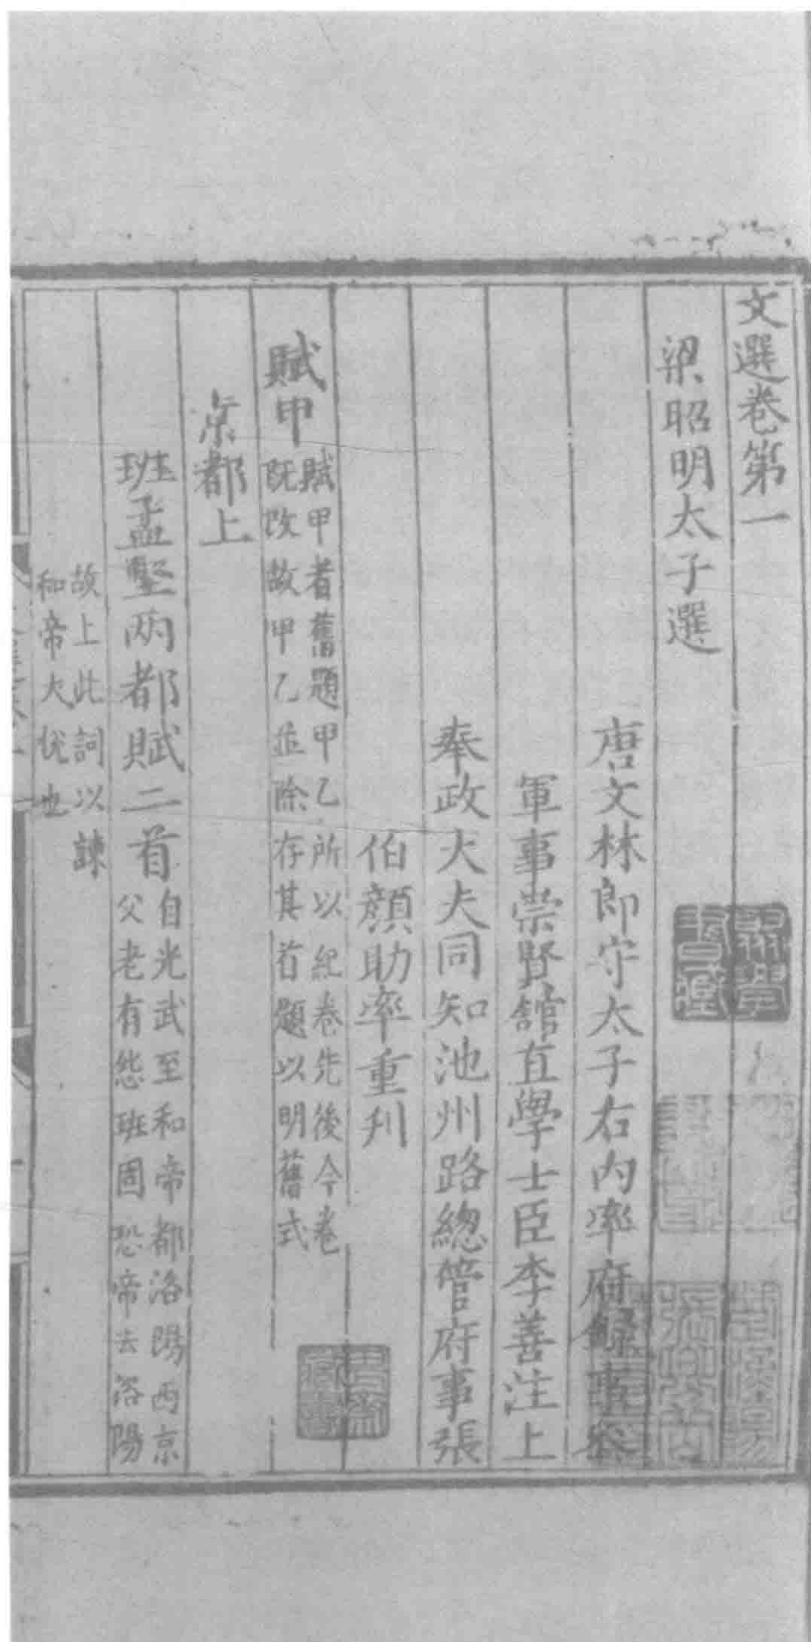 文選卷第一
梁昭明太子選
唐文林郎守太子右内率府錄事參
軍事崇賢館直學士臣李善注上
奉政大夫同知池州路總管府事張
伯顏助率重刋
賦甲
賦甲者舊題甲乙所以紀卷先後今卷
既改故甲乙並除存其首題以明舊式
京都上
班孟堅兩都賦二首
自光武至和帝都洛陽西京
父老有怨班固恐帝去洛陽
故上此詞以諫
和帝大恱也